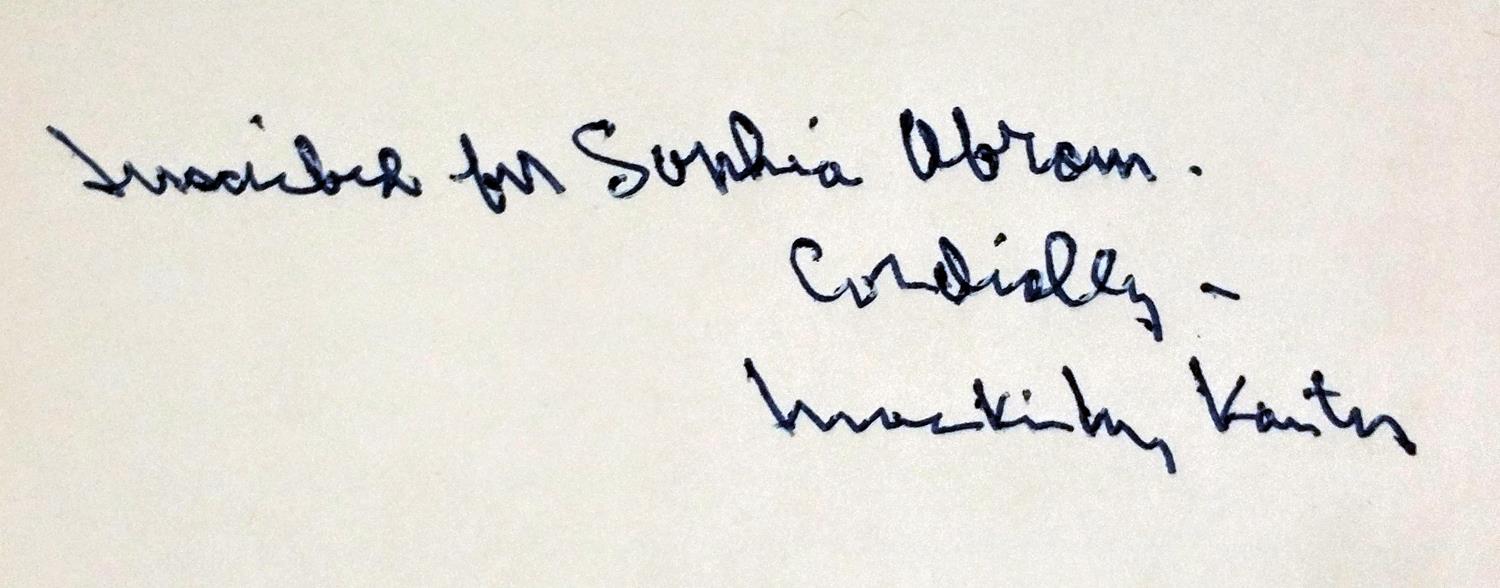 Inscribed for Sophia Abram.
Cordially -
MacKinlay Kantor